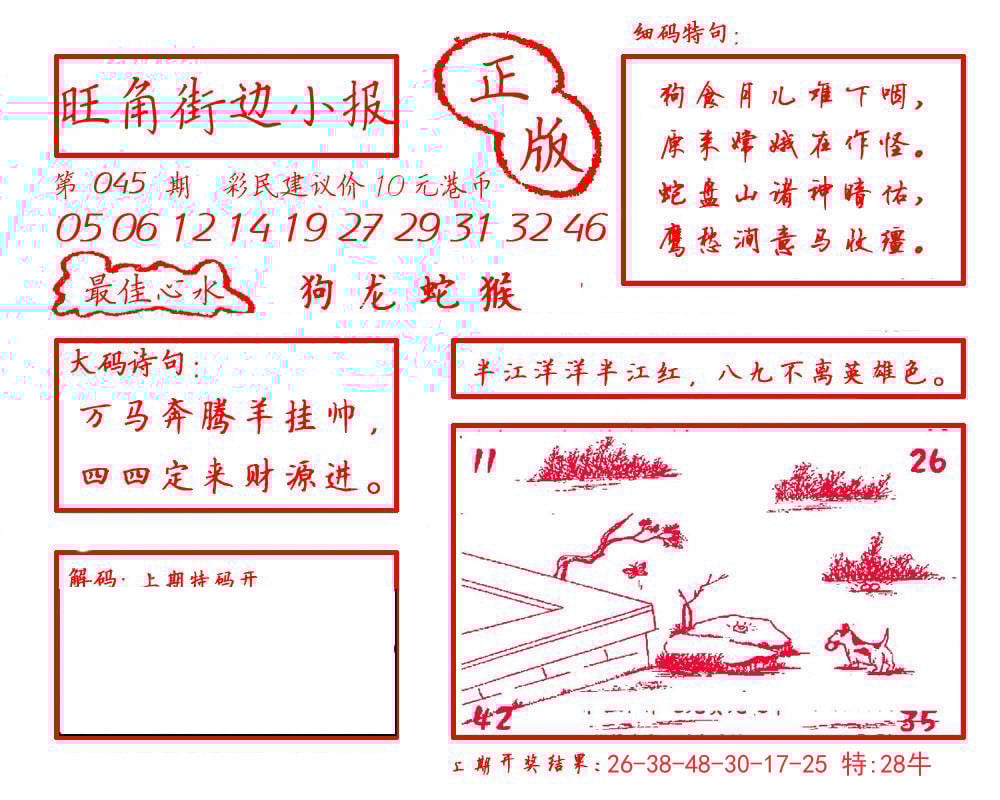 旺角街边小报
正版
第 045 期 彩民建议价 10 元港币
05 06 12 14 19 27 29 31 32 46
最佳心水
狗 龙 蛇 猴
细码特句：
狗食月儿谁下咽，
原来嫦娥在作怪。
蛇盘山诸神暗佑，
鹰愁涧意马收缰。
大码诗句：
万马奔腾羊挂帅，
四四定来财源进。
半江洋洋半江红，八九不离英雄色。
解码· 上期特码开
11
26
42
35
上期开奖结果：26-38-48-30-17-25 特:28牛